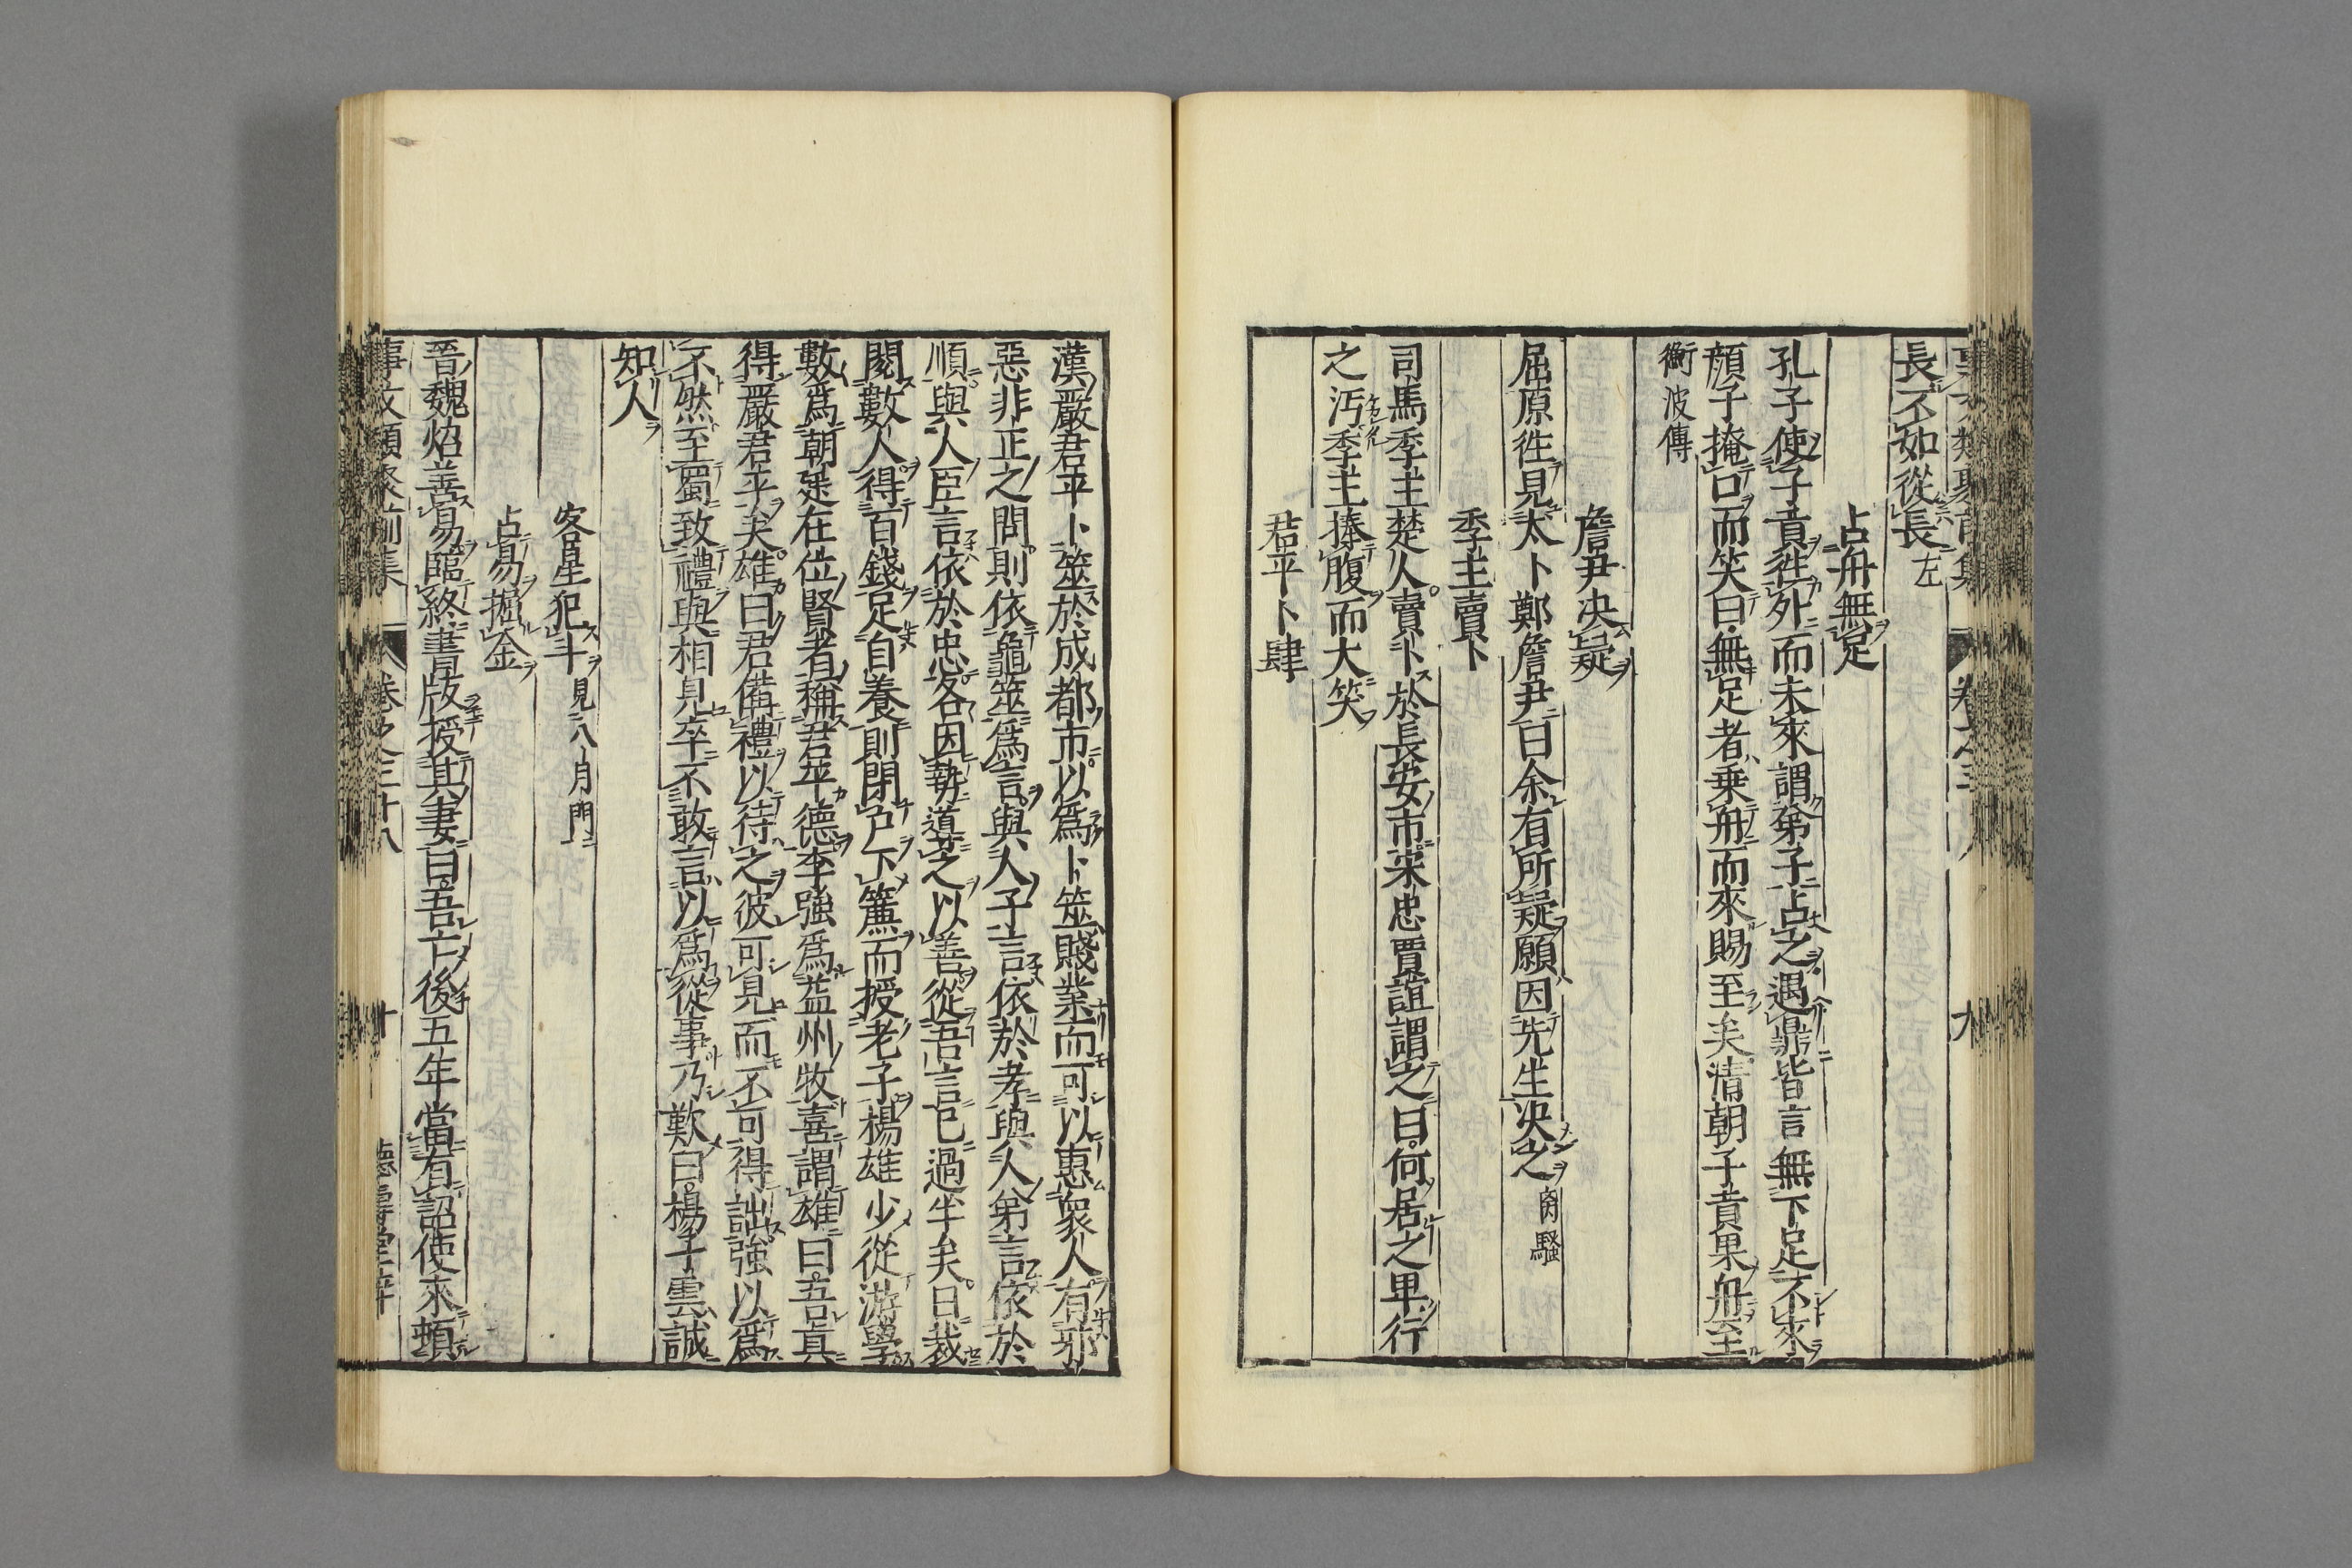 長不如從長左
占舟無足
孔子使子貢徃外而未來謂弟子占之遇鼎皆言無下足不來
顔子掩口而笑曰無足者乗舟而來賜至矣清朝子貢果舟至
衝波傳
詹尹决疑
屈原徃見太卜鄭詹尹曰余有所疑願因先生决之離騷
季主賣卜
司馬季主楚人賣卜於長安市宋忠賈誼謂之曰何居之卑行
之汚季主捧腹而大笑
君平卜肆
漢嚴君平卜筮於成都市以爲卜筮賤業而可以惠衆人有邪
惡非正之問則依龜筮爲言與人子言依於孝與人弟言依於
順與人臣言依於忠各因勢導之以善從吾言已過半矣日裁
閲數人得百錢足自養則閉户下簾而授老子楊雄少從游學
數爲朝廷在位賢者稱君平德李強爲益州牧喜謂雄曰吾真
得嚴君平矣雄曰君備禮以待之彼可見而不可得詘強以爲
不然至蜀致禮與相見卒不敢言以爲從事乃歎曰楊子雲誠
知人
客星犯斗見八月門
占易掘金
晉魏炤善易臨終書版授其妻曰吾亡後五年當有詔使來頓
事文類聚前集 卷之三十八 十